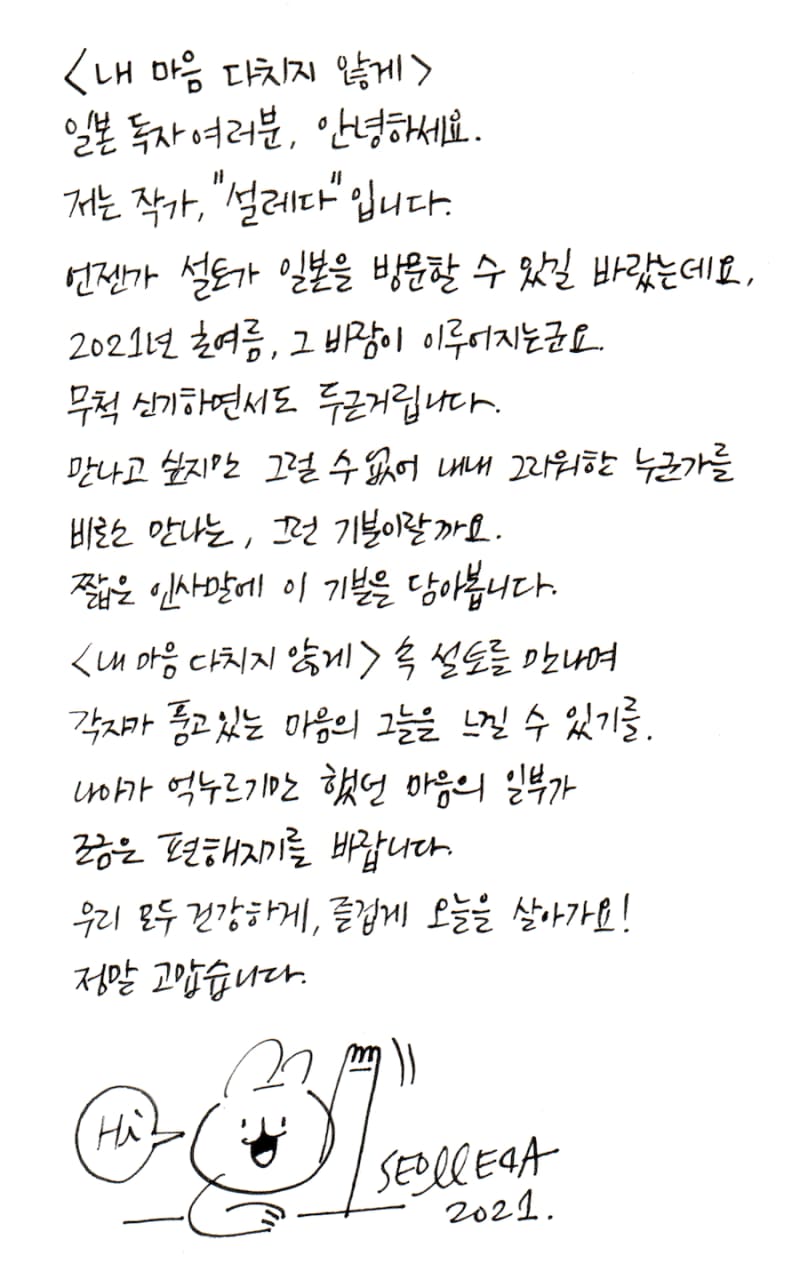 <내 마음 다치지 않게>
일본 독자 여러분, 안녕하세요.
저는 작가, "설레다"입니다.
언젠가 설토가 일본을 방문할 수 있길 바랐는데요,
2021년 초여름, 그 바람이 이루어지는군요.
무척 신기하면서도 두근거립니다.
만나고 싶지만 그럴 수 없어 내내 그리워한 누군가를
비로소 만나는, 그런 기분이랄까요.
짧은 인사말에 이 기분을 담아봅니다.
<내 마음 다치지 않게> 속 설토를 만나며
각자가 품고 있는 마음의 그늘을 느낄 수 있기를.
나아가 억누르기만 했던 마음의 일부가
조금은 편해지기를 바랍니다.
우리 모두 건강하게, 즐겁게 오늘을 살아가요!
정말 고맙습니다.
Hi
SEOLLEDA
2021.